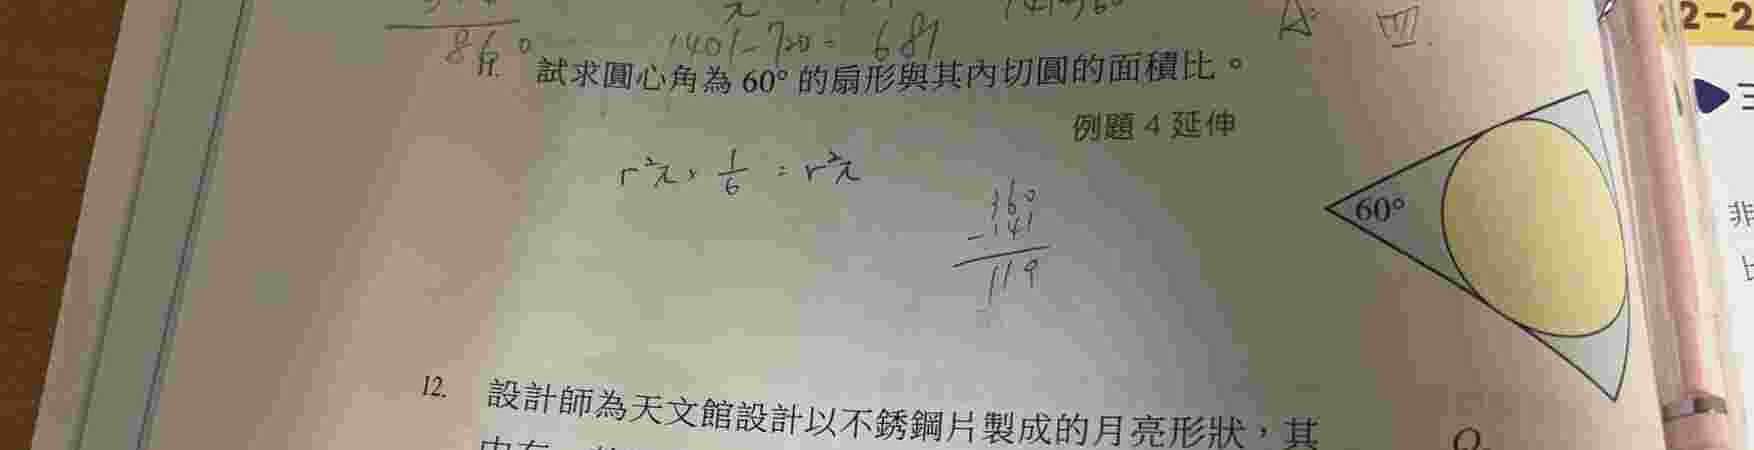 860
1401-720 = 681
A: 四.
2-2
11. 試求圓心角為 60° 的扇形與其內切圓的面積比。
例題 4 延伸
r²π × 1/6 = r²π
60°
160
-141
119
非
12. 設計師為天文館設計以不銹鋼片製成的月亮形狀，其